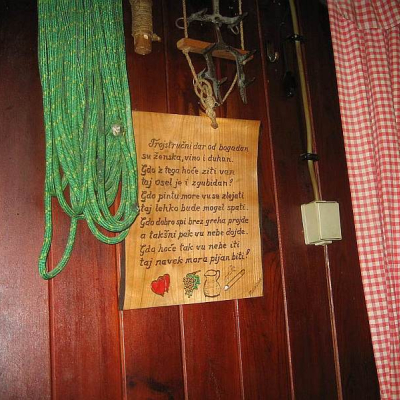 Trojstručni dar od bogadan
su ženska, vino i duhan.
Gdo z tega hoče ziti van
taj osel je i zgubidan!
Gdo pintu more vu se zlejati
taj lehko bude mogel spati.
Gdo dobro spi brez greha projde
a takšni pak vu nebe dojde.
Gdo hoče tak vu nebe iti
taj navek mora pijan biti!